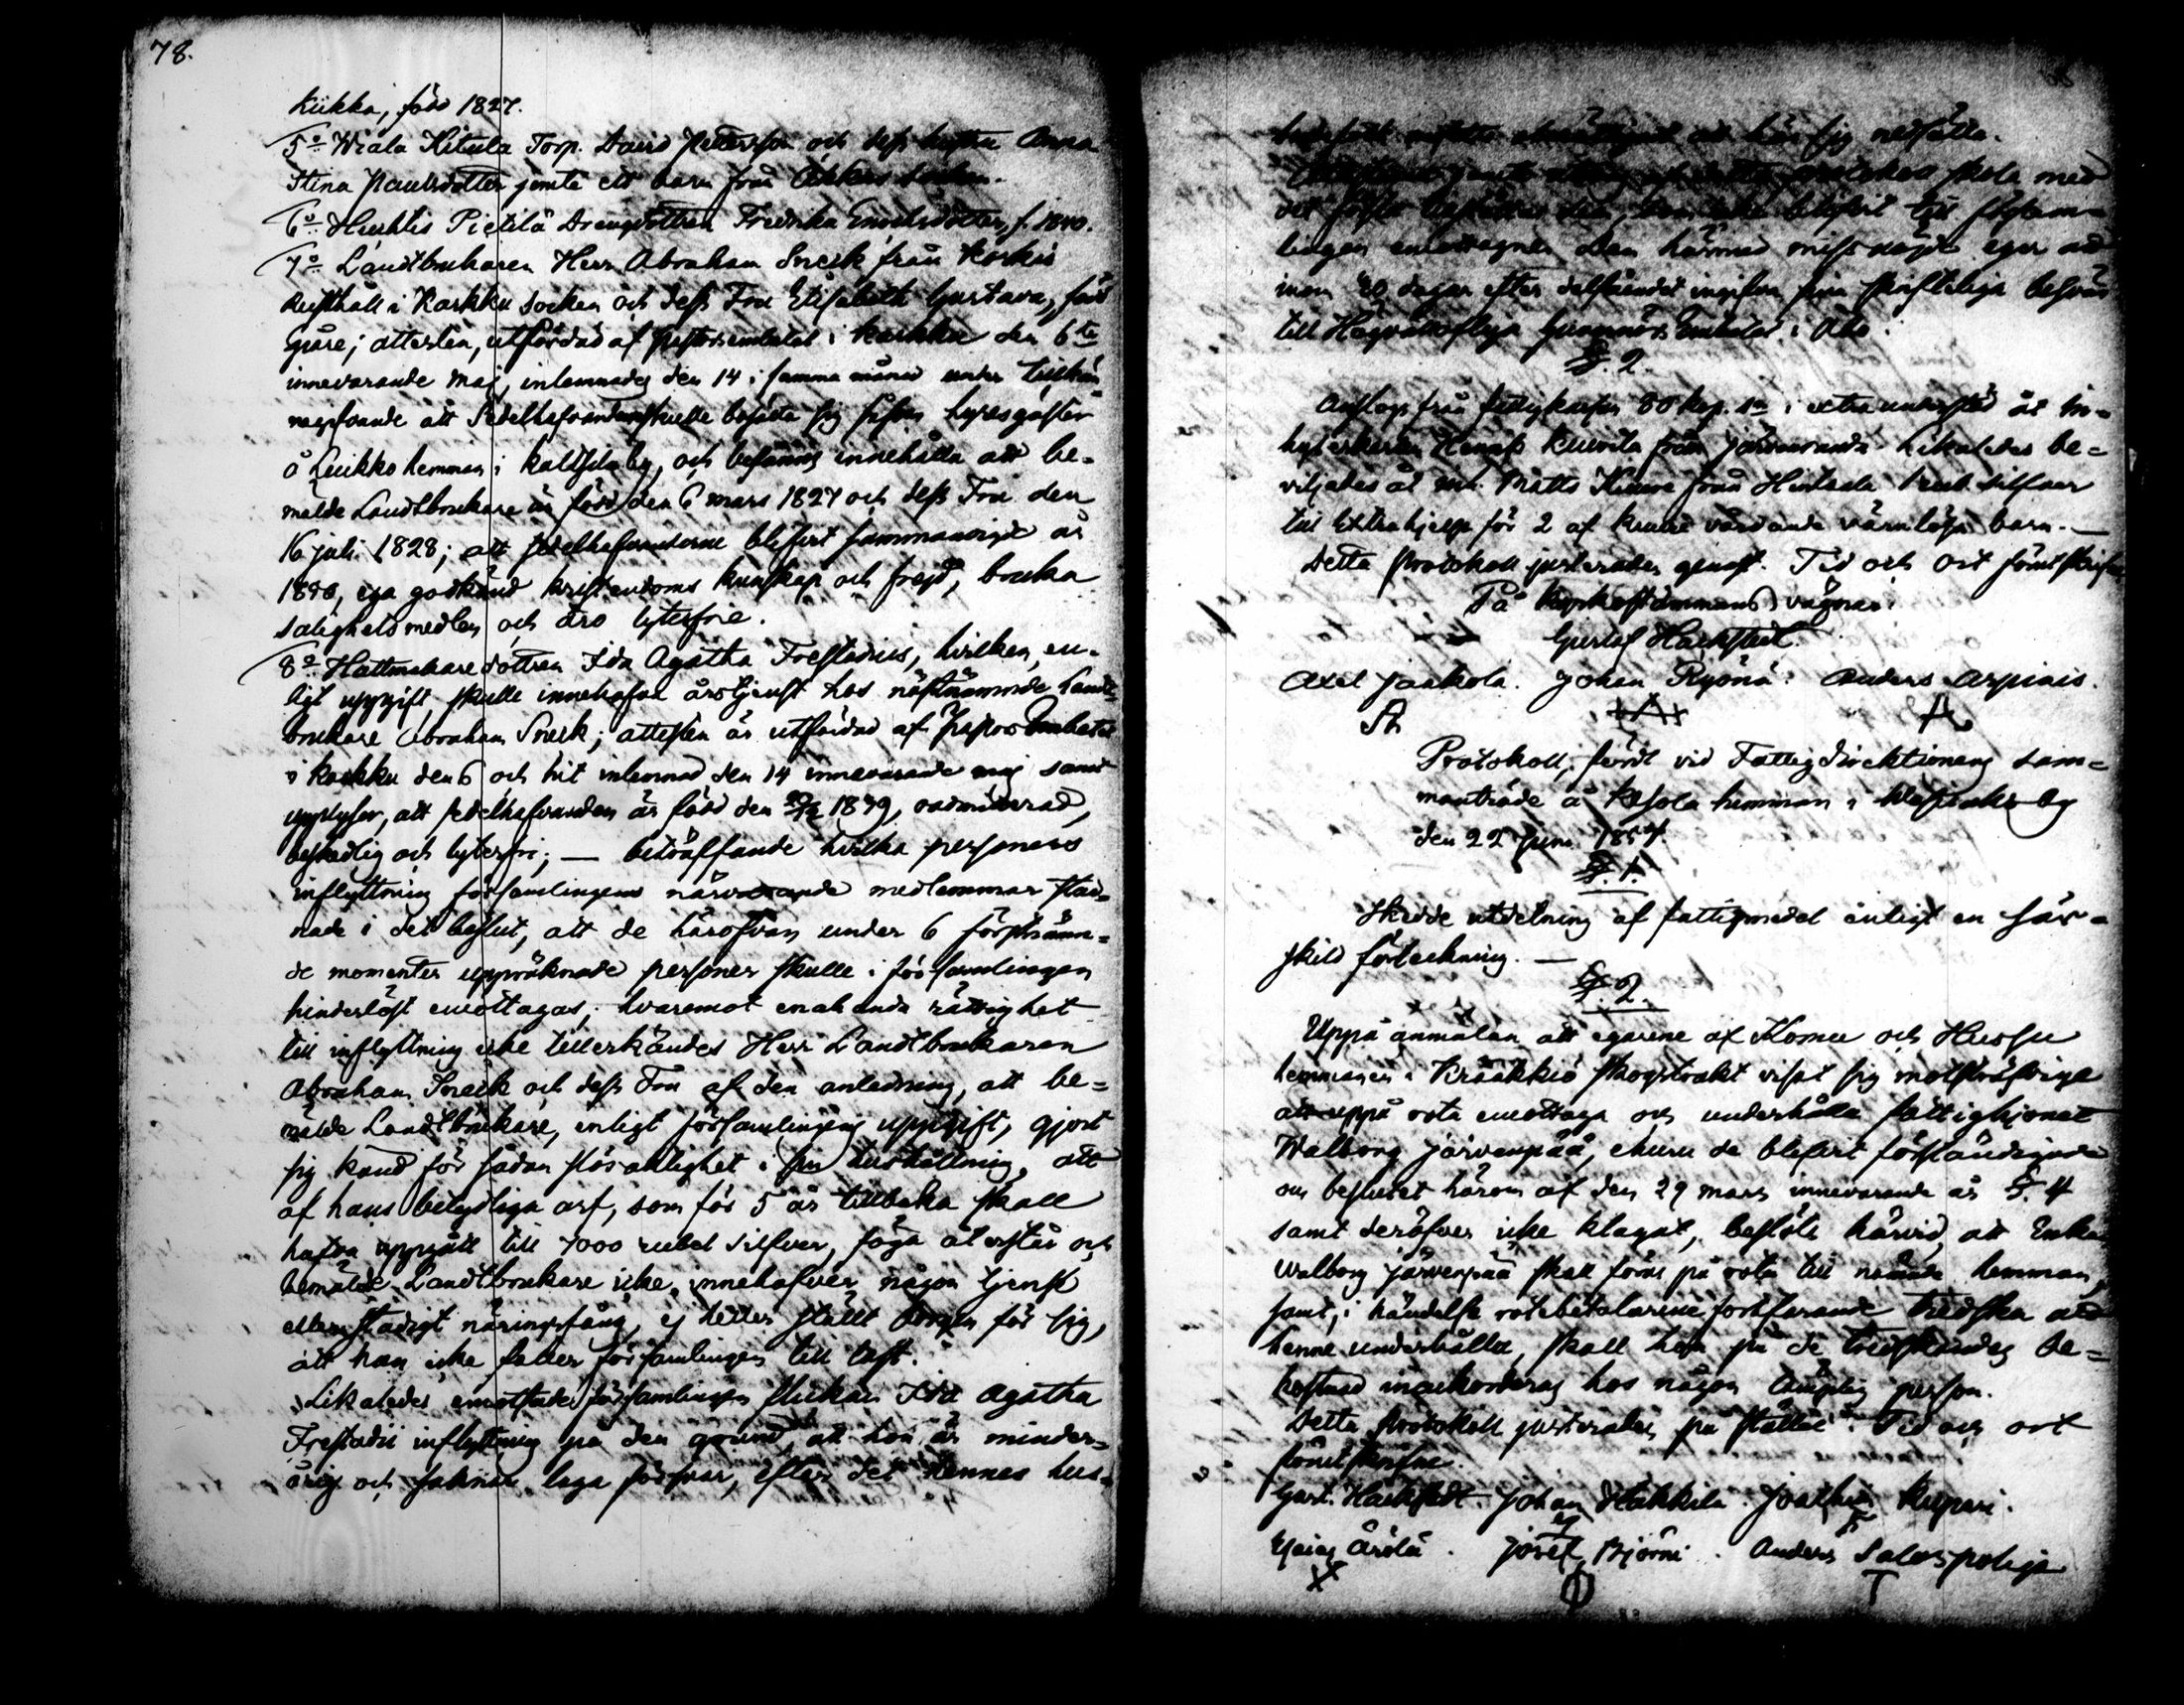 78.
Kükka, född 1827.
5o Wiala Kitula Torp. David Pettersson och dess hustru Anna
Stina Paulsdotter jemte ett barn från Akkas socken.
6o Huhtis Pietilä Drengdottren Fredrika Enochsdotter, f. 1840.
7o Landtbrukaren Herr Abraham Sneck från Korkis
Rusthåll i Karkku socken och dess Fru Elisabeth Gustava, född
attesten, utfärdad af Pastorsembetet i Karkku den 6te
innevarande Maj, inlemnades den 14 i samma månad under tillkän-
nagifvande att Sedelhafvanderne skulle bosätta sig såsom hyresgäster
å Luikko hemman i Kaltsila by, och befanns innehålla att be-
mälde Landtbrukare är född den 6 mars 1827 och dess Fru den
16 juli 1828; att sedelhafvanderne blifvit sammanvigde år
1850, ega godkänd kristendoms kunskap och frejd, bruka
salighetsmedlen och äro lytesfrie.
8o Hattmakaredottren Ida Agatha Frestadius, hvilken, en-
ligt uppgift skulle innehafva årstjenst hos näst nämnde Landt-
brukare Abraham Sneck; attesten är utfärdad af Pastors Embetet
i Karkku den 6 och hit inlemnad den 14 innevarande maj samt
upplyser, att sedelhafvanden är född den 1839, oadmitterad,
beskedlig och lytesfri; — beträffande hvilka personers
inflyttning församlingens närvarande medlemmar stan-
nade i det beslut, att de härofvan under 6 förstnämn-
de momenter uppräknade personer skulle i församlingen
hinderlöst emottagas, hvaremot enahanda rättighet
till inflyttning icke tillerkändes Herr Landtbrukaren
Abraham Sneck och dess Fru af den anledning, att be-
mälde Landtbrukare, enligt församlingens uppgift, gjort
sig känd för sådan slösaktighet i sin hushållning, att
af hans betydliga arf, som för 5 år tillbaka skall
hafva uppgått till 7000 rubel Silfver, föga återstår och
bemälde Landtbrukare icke innehafver någon tjenst
eller stadigt näringsfång, ej heller ställt borgen för sig,
att han icke faller församlingen till last.
Likaledes församlingen flickan Ida Agatha
Frestadii inflyttning på den grund, att hon är minder-
årig och saknar laga försvar, efter det hennes hus-
att här sig nedsätta.
protokoll skola med
det första tillställas dem, som icke blifvit till församlingen
emottagne. Den härmed missnöjde eger att
inom 30 dagar efter delfåendet ingifva sina skriftliga besvär
till Högvällofliga Guvernörs Embetet i Åbo.
§. 2.
Anslogs från fattigkassan 80 kop. Sr i extra understöd åt in-
hyseskarlen Kuuvila från Likaledes be-
viljades åt Matts Kuure från Hintsala 1 rub. silfver
till Extra hjelp för 2 af Kuure vårdande värnlösa barn. —
Detta Protokoll justerades genast. Tid och Ort som förut skrifvet
På Kyrkostämmans vägnar:
Gustaf Hackstedt.
Axel Jaakola. Johan Ryönä. Anders Arpiais.
Protokoll, fördt vid Fattigdirektionens sam-
manträde å Kesola hemman i by
den 22 Juni 1857.
§. 1.
Skedde utdelning af fattigmedel enligt en sär-
skild förteckning. —
§. 2.
Uppå anmälan att egarene af Komu och Hussu
hemmanen i Kraakkio Skogstrakt visat sig motsträfvige
att uppå rota emottaga och underhålla fattighjonet
Walborg Järvenpää, ehuru de blifvit förständigade
om beslutet härom af den 29 mars innevarande år §. 4
samt deröfver icke klagat, beslöts härvid, att Enkan
Walborg Järvenpää skall föras på rota till nämnde hemman,
samt, i händelse rotebetalarene fortfarande tredska att
henne underhålla, skall hon på de tredskandes be-
kostnad inackorderas hos någon lämplig person.
Detta Protokoll justerades på stället. Tid och ort
förut skrifne.
Gust. Hackstedt. Johan Häkkilä. Joachim Kupari.
Esaias Ärölä. Josef Björni. Anders Salospohja